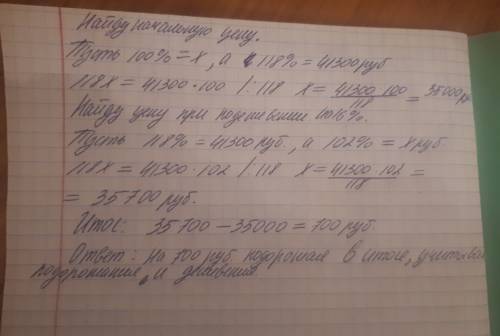 Найду начальную цену.
Пусть 100% = x, а 118% = 41300 руб
118x = 41300 · 100 | : 118 x = 41300 · 100 / 118 = 35000 р
Найду цену при подешевении на 16%.
Пусть 118% = 41300 руб., а 102% = x руб
118x = 41300 · 102 | : 118 x = 41300 · 102 / 118 =
= 35700 руб.
Итог: 35700 – 35000 = 700 руб.
Ответ: на 700 руб. подорожал в итоге, учитывая
подорожания, и дешевения.